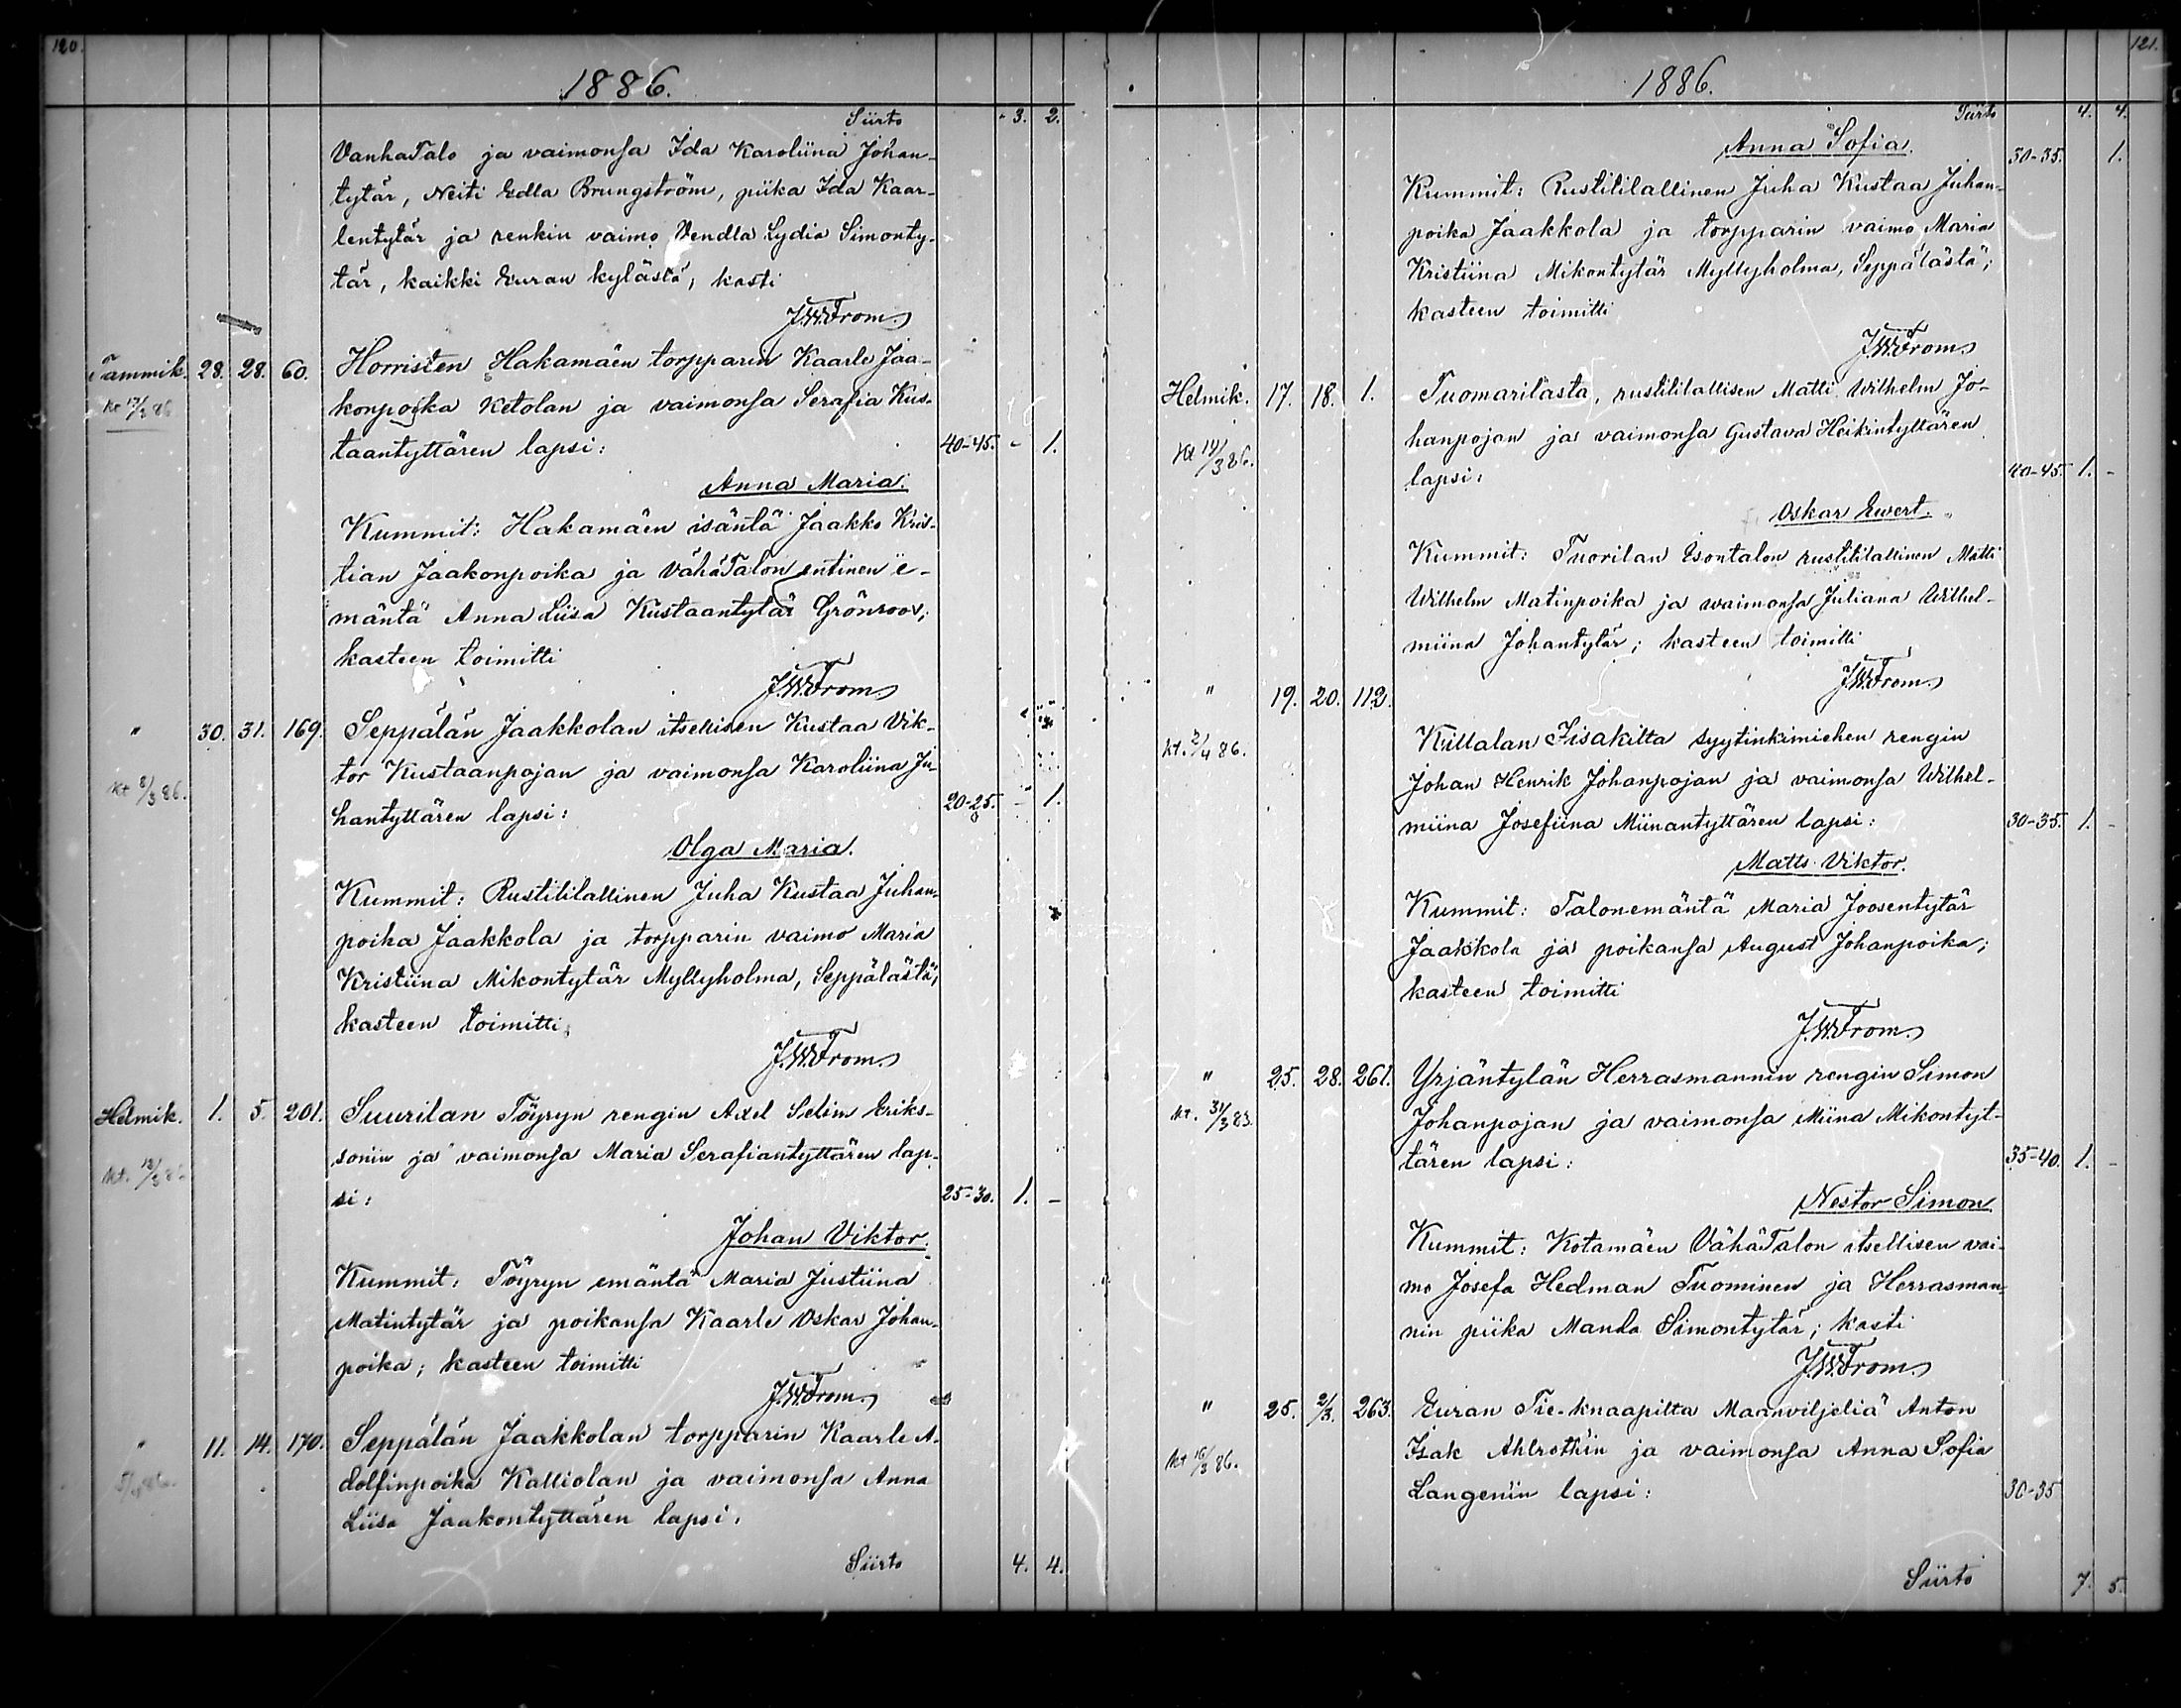 120.
1886.
Siirto 3. 2.
VanhaTalo ja vaimonsa Ida Karoliina Johan-
tytär, Neiti Edla Brungström, piika Ida Kaar-
lentytär ja renkin vaimo Vendla Lydia Simonty-
tär, kaikki Euran kylästä; kasti
J.W.From.
Tammik. 28. 28. 60. Horristen Hakamäen torpparin Kaarle Jaa-
konpoika Ketolan ja vaimonsa Serafia Kus-
taantyttären lapsi: 40-45. - 1.
Anna Maria.
Kummit: Hakamäen isäntä Jaakko Kris-
tian Jaakonpoika ja VähäTalon entinen e-
mäntä Anna Liisa Kustaantytär Grönroos;
kasteen toimitti
J.W.From.
" 30. 31. 169. Seppälän Jaakkolan itsellisen Kustaa Vik-
tor Kustaanpojan ja vaimonsa Karoliina Ju-
Kt 8/3 86.
hantyttären lapsi: 20-25. - 1.
Olga Maria.
Kummit: Rustitilallinen Juha Kustaa Juhan-
poika Jaakkola ja torpparin vaimo Maria
Kristiina Mikontytär Myllyholma, Seppälästä;
kasteen toimitti
J.W.From.
Helmik. 1. 5. 201. Suurilan Töyryn rengin Axel Selim Eriks-
sonin ja vaimonsa Maria Serafiantyttären lap-
si: 25-30. 1. -
Johan Viktor.
Kummit: Töyryn emäntä Maria Justiina
Matintytär ja poikansa Kaarle Oskar Johan-
poika; kasteen toimitti
J.W.From.
" 11. 14. 170. Seppälän Jaakkolan torpparin Kaarle A-
dolfinpoika Kalliolan ja vaimonsa Anna
Liisa Jaakontyttären lapsi.
Siirto 4. 4.
121.
1886.
Siirto 4. 4.
Anna Sofia. 30-35. 1.
Kummit: Rustitilallinen Juha Kustaa Juhan-
poika Jaakkola ja torpparin vaimo Maria
Kristiina Mikontytär Myllyholma, Seppälästä;
kasteen toimitti
J.W.From.
Helmik. 17. 18. 1. Tuomarilasta, rustitilallisen Matti Wilhelm Jo-
hanpojan ja vaimonsa Gustava Heikintyttären
Kt 14/3 86.
lapsi: 40-45. 1. -
Oskar Ewert.
Kummit: Tuorilan Isontalon rustitilallinen Matti
Wilhelm Matinpoika ja waimonsa Juliana Wilhel-
miina Johantytär; kasteen toimitti
J.W.From.
" 19. 20. 112.
Kt. 2/4 86.
Killalan Iisakilta syytinkimiehen rengin
Johan Henrik Johanpojan ja vaimonsa Wilhel-
miina Josefiina Miinantyttären lapsi: 30-35. 1. -
Matts Viktor.
Kummit: Talonemäntä Maria Joosentytär
Jaakkola ja poikansa August Johanpoika;
kasteen toimitti
J.W.From.
" 25. 28. 261. Yrjäntylän Herrasmannin rengin Simon
Johanpojan ja vaimonsa Miina Mikontyt-
tären lapsi: 35-40. 1. -
Nestor Simon
Kummit: Kotamäen VähäTalon itsellisen vai-
mo Josefa Hedman Tuominen ja Herrasman-
nin piika Manda Simontytär; kasti
J.W.From.
" 25. 2/3. 263. Euran Tie-knaapilta Maanviljeliä Anton
Isak Ahlrothin ja vaimonsa Anna Sofia
Kt 16/3 86.
Langenin lapsi: 30-35
Siirto 7. 5.